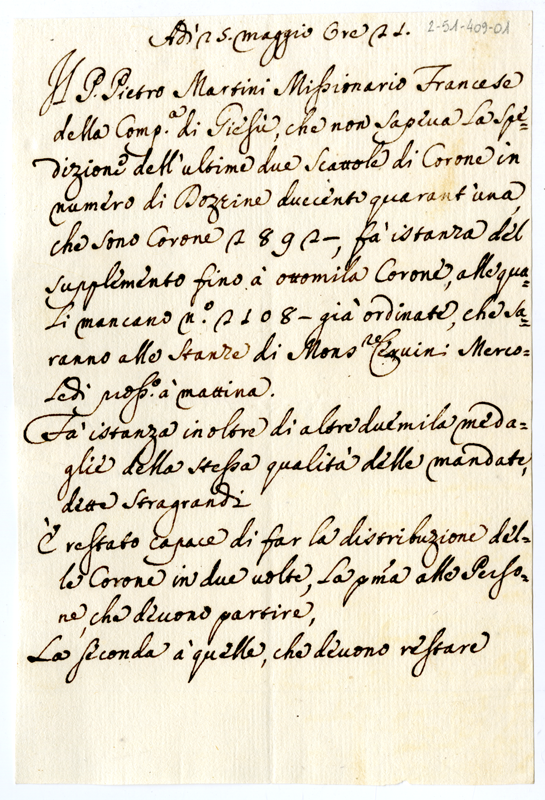 2-51-409-01
Adì 25. maggio Ore 21.
Il P. Pietro Martini Missionario Francese
della Comp.ª di Giesù, che non sapeva la spe=
dizione dell'ultime due Scattole di Corone in
numero di Dozzine duecento quarant'una,
che sono Corone 2892–, fà istanza del
supplemento fino à ottomila Corone, alle qua=
li mancano n.º 2108– già ordinate, che sa=
ranno alle stanze di Mons.re Cervini Merco=
ledì pross.º à mattina.
Fà istanza inoltre di altre duemila meda=
glie della stessa qualità delle mandate,
dette Stragrandi
È restato capace di far la distribuzione del=
le Corone in due volte, La pma alle Perso=
ne, che devono partire,
La seconda à quelle, che devono restare